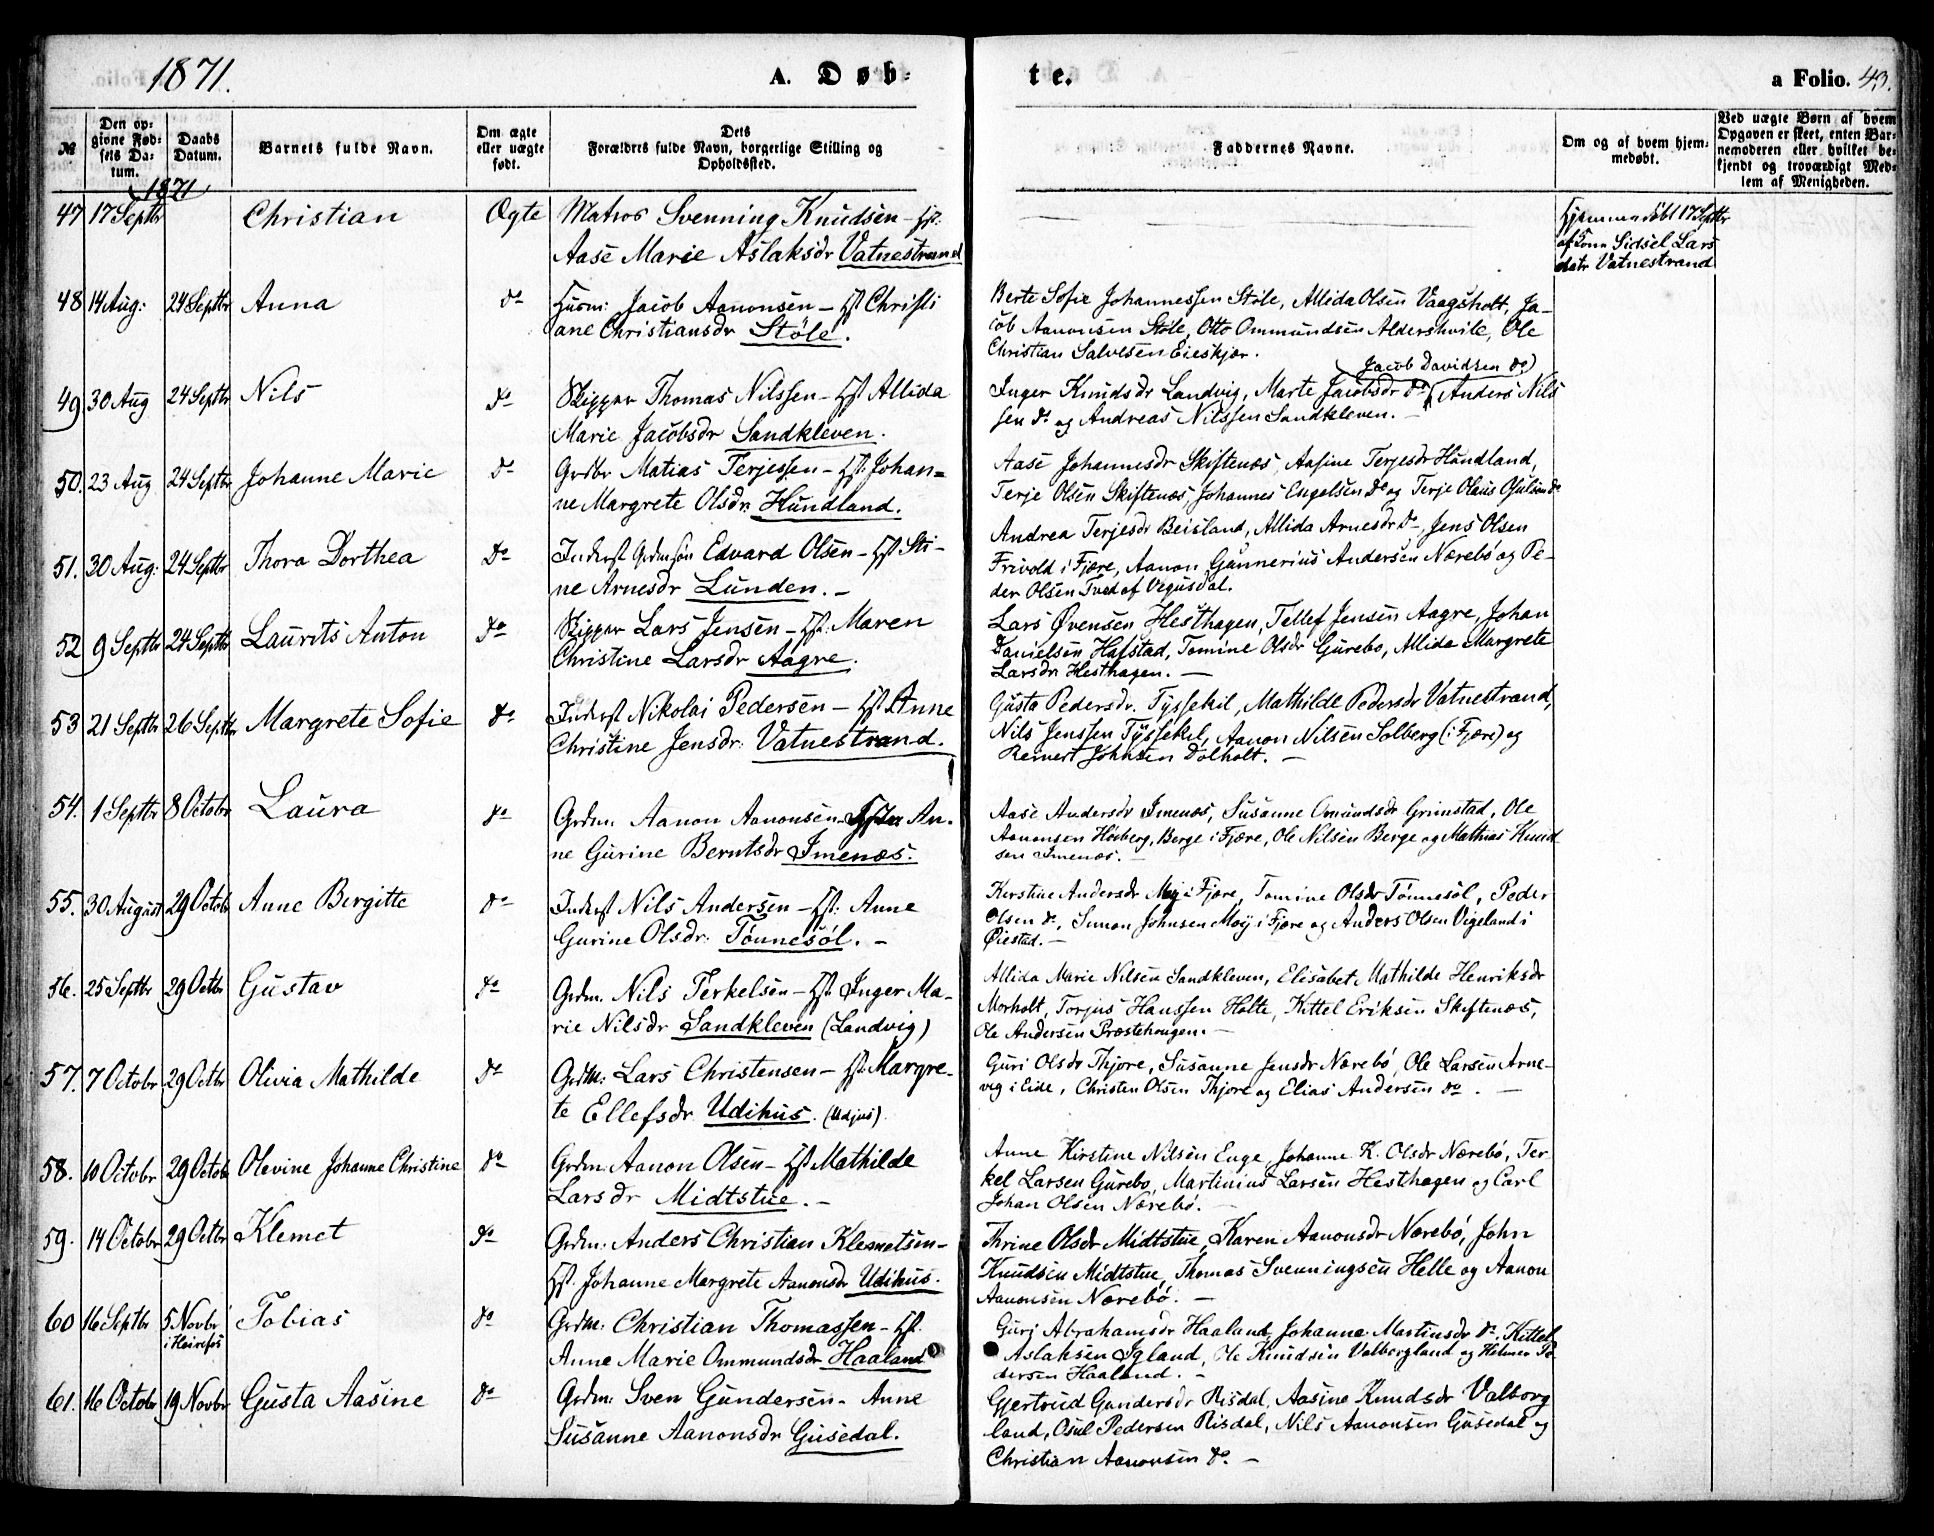 1871.
A. Døb-
te.
a Folio. 43.
№
Den op-
givne Fød-
sels Da-
tum.
Daabs
Datum.
Barnets fulde Navn.
Om ægte
eller uægte
født.
Dets
Forældres fulde Navn, borgerlige Stilling og
Opholdssted.
Faddernes Navne.
Om og af hvem hjem-
medøbt.
Ved uægte Børn af hvem
Opgaven er skeet, enten Bar-
nemoderen eller hvilket be-
kjendt og troværdigt Med-
lem af Menigheden.
1871
47 17 Septbr Christian Ægte Matros Svenning Knudsen - Hst:
Aase Marie Aslaksdr Vatnestrand
Hjemmedøbt 17 Septbr
af Kone Sidsel Lars
datr Vatnestrand
48 14 Aug: 24 Septbr Anna do Husm: Jacob Aanonsen - Hst Christi
ane Christiansdr Støle.
Berte Sofie Johannessen Støle, Allida Olsen Vaagsholt, Ja-
cob Aanonsen Støle, Otto Ommundsen Aldershvile, Ole
Christian Salvesen Eieskjær.
49 30 Aug 24 Septbr Nils do Skipper Thomas Nilssen - Hst Allida
Marie Jacobsdr Sandkleven.
Jacob Davidsen do
Inger Knudsdr Landvig, Marte Jacobsdr do Anders Nils
sen do og Andreas Nilssen Sandkleven. -
50. 23 Aug 24 Septbr Johanne Marie do Grdbr Matias Terjessen - Hst: Johan-
ne Margrete Olsdr. Hundland.
Aase Johannesdr Skiftenæs, Aasine Terjesdr Hundland,
Terje Olsen Skiftenæs, Johannes Engelsen do og Terje Olaus Osulsen do
51. 30 Aug: 24 Septbr Thora Dorthea Do Inderst Grdmsøn Edvard Olsen - Hst Sti-
ne Arnesdr Lunden. -
Andrea Terjesdr Beisland, Allida Arnesdr do, Jens Olsen
Frivold i Fjære, Aanon Gunnerius Andersen Nærebø og Pe-
der Olsen Tved af Vegusdal.
52 9 Septbr 24 Septbr Laurits Anton do Skipper Lars Jensen - Hst. Maren
Christine Larsdr Aagre.
Lars Øvensen Hesthagen, Tellef Jensen Aagre, Johan
Danielsen Hafstad, Tomine Olsdr Gurebo, Allida Margrete
Larsdr Hesthagen. -
53 21 Septbr 26 Septbr Margrete Sofie do Inderst Nikolai Pedersen - Hst Anne
Christine Jensdr. Vatnestrand.
Gusta Pedersdr. Tyssekil, Mathilde Pedersdr Vatnestrand,
Nils Jenssen Tyssekil, Aanon Nilsen Solberg (i Fjære) og
Reinert Johnsen Dolholt. -
54. 1 Septbr 8 Octobr Laura do Grdm. Aanon Aanonsen An-
ne Gurine Berntsdr Imenæs.
Aase Andersdr Imenæs, Susanne Omundsdr Grimstad, Ole
Aanonsen Høeberg, Berge i Fjære, Ole Nilsen Berge og Mathias Knud
sen Imenæs. -
55. 30 August 29 Octobr Anne Bergitte do Inderst Nils Andersen - Hst: Anne
Gurine Olsdr. Tønnesøl. -
Kerstine Andersdr Moj i Fjære, Tomine Olsdr Tønnesøl, Peder
Olsen do, Simon Johnsen Moj i Fjære og Anders Olsen Vigeland i
Øiestad. -
56. 25 Septbr 29 Octbr Gustav do Grdm. Nils Terkelsen - Hst. Inger Ma-
rie Nilsdr Sandkleven (Landvig)
Allida Marie Nilsen Sandkleven, Elisabet Mathilde Henriksdr
Morholt, Torjus Hanssen Holte, Kittel Eriksen Skiftenæs,
Ole Andersen Præstehougen. -
57. 7 Octobr 29 Octbr Olivia Mathilde do Grdm: Lars Christensen - Hst: Margre-
te Ellefsdr Udihus. (Udjus).
Guri Olsdr Thjore, Susanne Jensdr Nærebø, Ole Larsen Arne-
vig i Eide, Christen Olsen Thjore og Elias Andersen do. -
58. 10 Octobr 29 Octobr Olevine Johanne Christine do Grdm: Aanon Olsen - Hst Mathilde
Larsdr Midtstue. -
Anne Kirstine Nilsen Enge, Johanne K. Olsdr Nærebø, Ter
kel Larsen Gurebo, Martinius Larsen Hesthagen og Carl
Johan Olsen Nærebø. -
59. 14 Octobr 29 Octbr Klemet do Grdm: Anders Christian Klemetsen -
Hst. Johanne Margrete Aanonsdr Udihus.
Thrine Olsdr Midtstue, Karen Aanonsdr Nærebø, John
Knudsen Midtstue, Thomas Svenningsen Helle og Aanon
Aanonsen Nærebø. -
60 16 Septbr 5 Novbr Tobias do Grdm: Christian Thomassen - Hst.
i Heirefos
Anne Marie Ommundsdr Haaland
Gurj Abrahamsdr Haaland, Johanne Martinsdr do, Kittel
Aslaksen Igland, Ole Knudsen Valborgland og Helmer Pe
dersen Haaland. -
61. 16 Octobr 19 Novbr Gusta Aasine do Grdm: Sven Gundersen - Anne
Susanne Aanonsdr Gusedal.
Gjertrud Gundersdr Risdal, Aasine Knudsdr Valborg
land, Osul Pedersen Risdal, Nils Aanonsen Gusedal og
Christian Aanonsen do. -